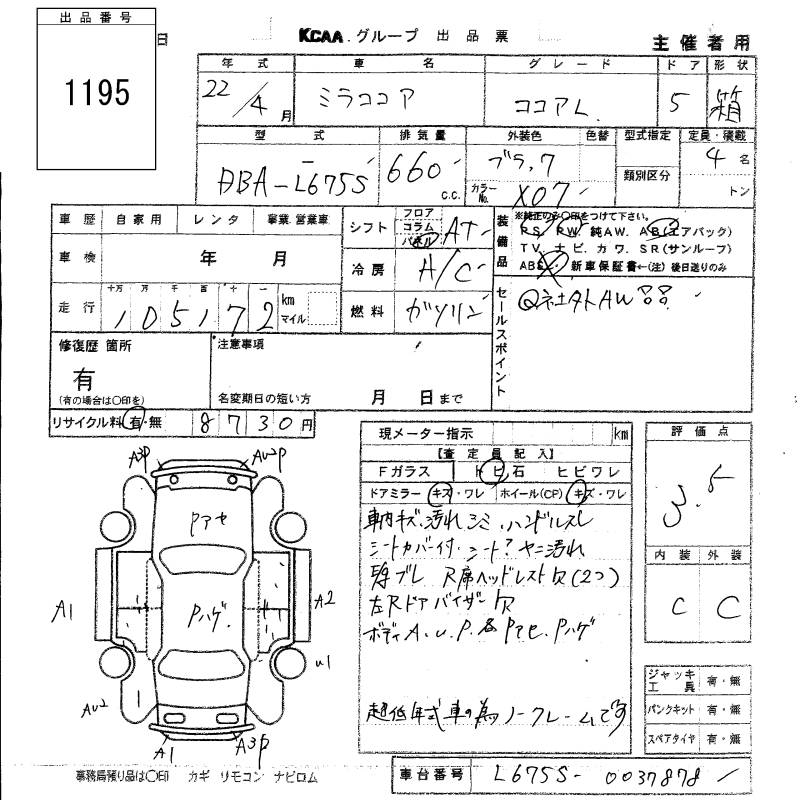 出品番号
1195
KCAA グループ 出品票
主催者用
年式 車名 グレード ドア 形状
22/4月 ミラココア ココアL 5 箱
型式 排気量 外装色 色替 型式指定 定員・積載
DBA-L675S 660 c.c. ブラック 類別区分 4名
カラーNo. X07 トン
車歴 自家用 レンタ 事業.営業車
シフト フロア コラム パネル AT
装備品 ※純正のみ〇印をつけて下さい。
PS PW 純AW. AB(エアバック)
TV. ナビ. カワ. SR(サンルーフ)
ABS 新車保証書←(注)後日送りのみ
車検 年 月
冷房 A/C
走行 十万 万 千 百 十 一 km マイル
105172
燃料 ガソリン
セールスポイント
社外AW
修復歴 箇所
有
(有の場合は〇印を)
注意事項
名変期日の短い方 月 日まで
リサイクル料 有・無 8730円
現メーター指示 km
【査定員記入】
Fガラス トビ石 ヒビワレ
ドアミラー キズ・ワレ ホイール(CP) キズ・ワレ
車内キズ.汚れ.シミ.ハンドルスレ
シートカバー付.シート?ヤニ汚れ
R席ヘッドレスト欠(2つ)
左Rドアバイザー欠
ボディA.U.P.各Pアセ.Pハゲ
超低年式車の為ノークレームです
評価点
3.5
内装 外装
C C
ジャッキ工具 有・無
パンクキット 有・無
スペアタイヤ 有・無
A3P AU2P
Pアセ
A1 Pハゲ. A2
U1
AU2
A1 A3P
事務局預り品は〇印 カギ リモコン ナビロム
車台番号 L675S-0037878